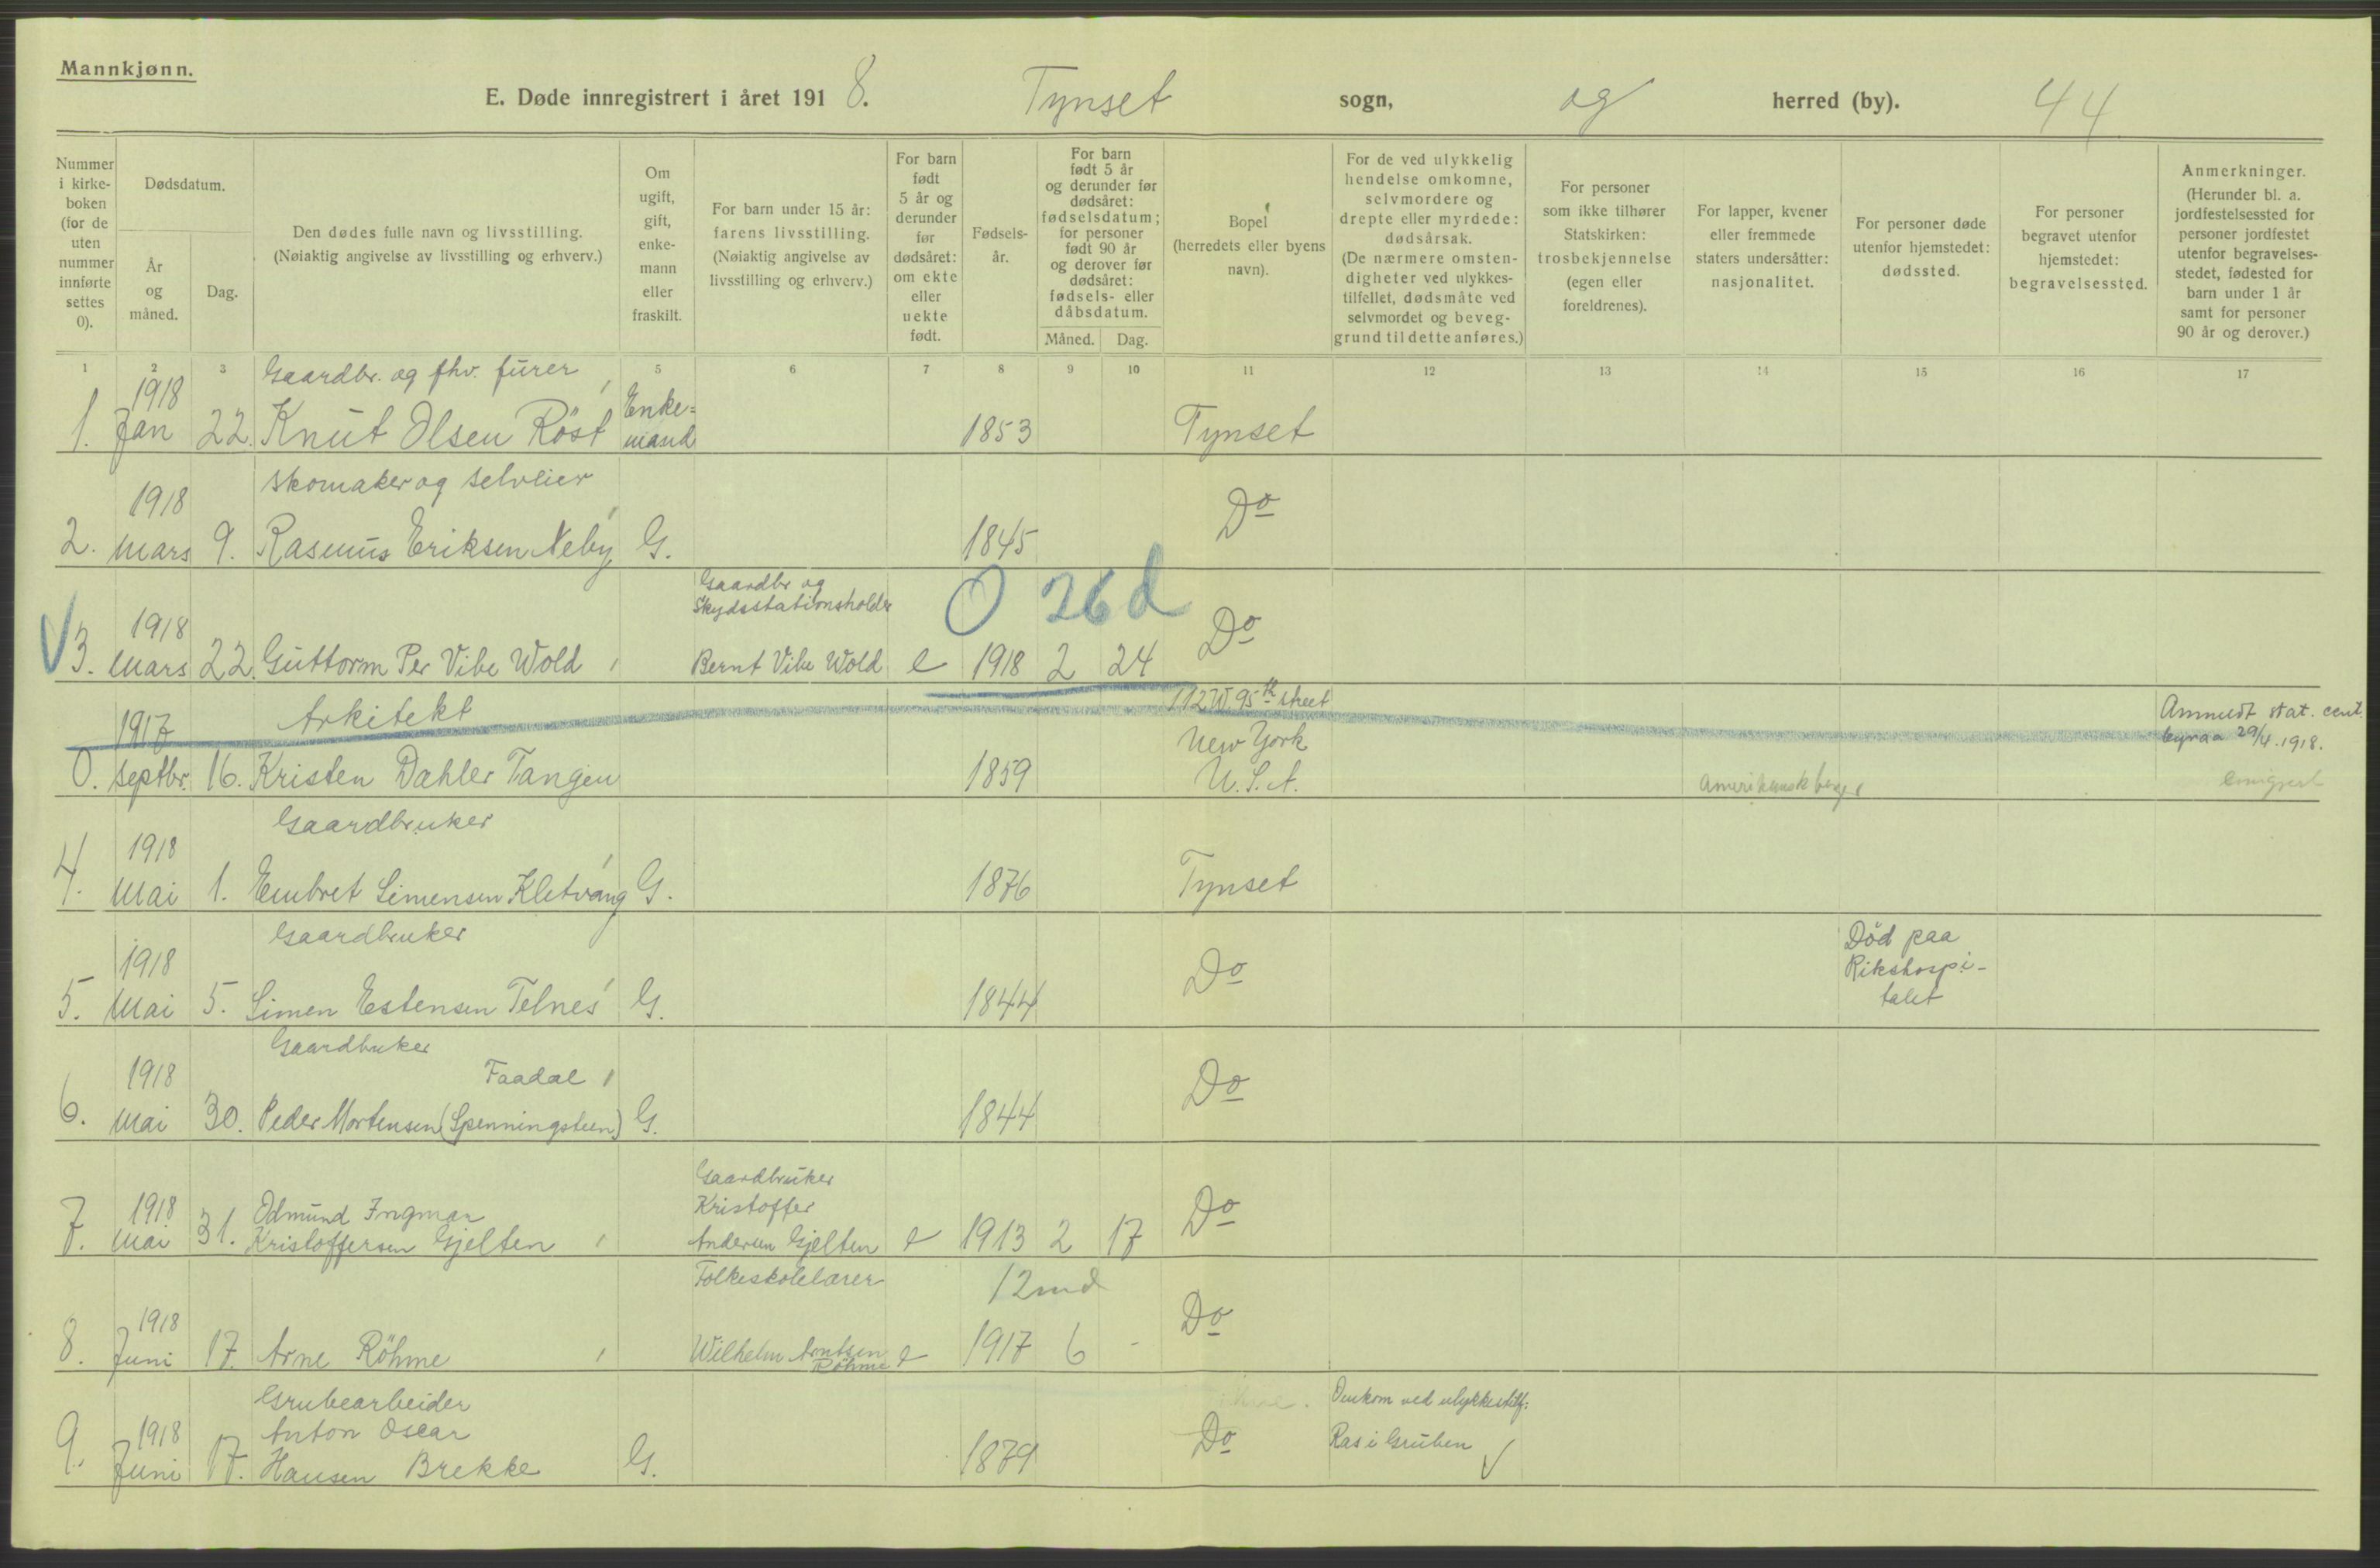 Mannkjønn.
E. Døde innregistrert i året 1918. Tynset sogn, og herred (by). 44
Nummer i kirkeboken (for de uten nummer innførte settes 0).
Dødsdatum.
År og måned.
Dag.
Den dødes fulle navn og livsstilling.
(Nøiaktig angivelse av livsstilling og erhverv.)
Om ugift, gift, enkemann eller fraskilt.
For barn under 15 år: farens livsstilling. (Nøiaktig angivelse av livsstilling og erhverv.)
For barn født 5 år og derunder før dødsåret: om ekte eller uekte født.
Fødselsår.
For barn født 5 år og derunder før dødsåret: fødselsdatum; for personer født 90 år og derover før dødsåret: fødsels- eller dåbsdatum.
Måned.
Dag.
Bopel (herredets eller byens navn).
For de ved ulykkelig hendelse omkomne, selvmordere og drepte eller myrdede: dødsårsak. (De nærmere omstendigheter ved ulykkestilfellet, dødsmåte ved selvmordet og beveggrund til dette anføres.)
For personer som ikke tilhører Statskirken: trosbekjennelse (egen eller foreldrenes).
For lapper, kvener eller fremmede staters undersåtter: nasjonalitet.
For personer døde utenfor hjemstedet: dødssted.
For personer begravet utenfor hjemstedet: begravelsessted.
Anmerkninger. (Herunder bl. a. jordfestelsessted for personer jordfestet utenfor begravelsesstedet, fødested for barn under 1 år samt for personer 90 år og derover.)
1 2 3 5 6 7 8 9 10 11 12 13 14 15 16 17
Gaardbr. og fhv. furer
1918 Enke-
1. Jan 22. Knut Olsen Röst mand 1853 Tynset
Skomaker og selveier
1918 Do
2. Mars 9. Rasmus Eriksen Neby G. 1845
Gaardbr og
Skydsstationsholder 0 26 d
1918 Do
3. Mars 22. Guttorm Per Vibe Wold Bernt Vibe Wold e 1918 2 24
Arkitekt 112 W. 95th street Anmeldt stat. cent.
1917 New York byraa 29/4.1918.
0. Septbr. 16. Kristen Dahler Tangen 1859 U.S.A. Amerikansk borger emigrert
Gaardbruker
1918
4. Mai 1. Embret Simensen Kletvang G. 1876 Tynset
Gaardbruker Död paa
1918 Do Rikshospi-
5. Mai 5. Simen Estensen Telnes G. 1844 talet
Gaardbruker
1918 Faadal Do
6. Mai 30. Peder Mortensen (Spenningsteen) G. 1844
Gaardbruker
1918 Odmund Ingmar Kristoffer Do
7. Mai 31. Kristoffersen Gjelten Andersen Gjelten e 1913 2 17
Folkeskolelærer 12 md
1918 Do
8. Juni 17. Arne Röhme Wilhelm Arntsen e 1917 6 -
Röhme
Grubearbeider Omkom ved ulykkestilf:
1918 Anton Oscar Do Ras i Gruben
9. Juni 17. Hansen Brekke G. 1879